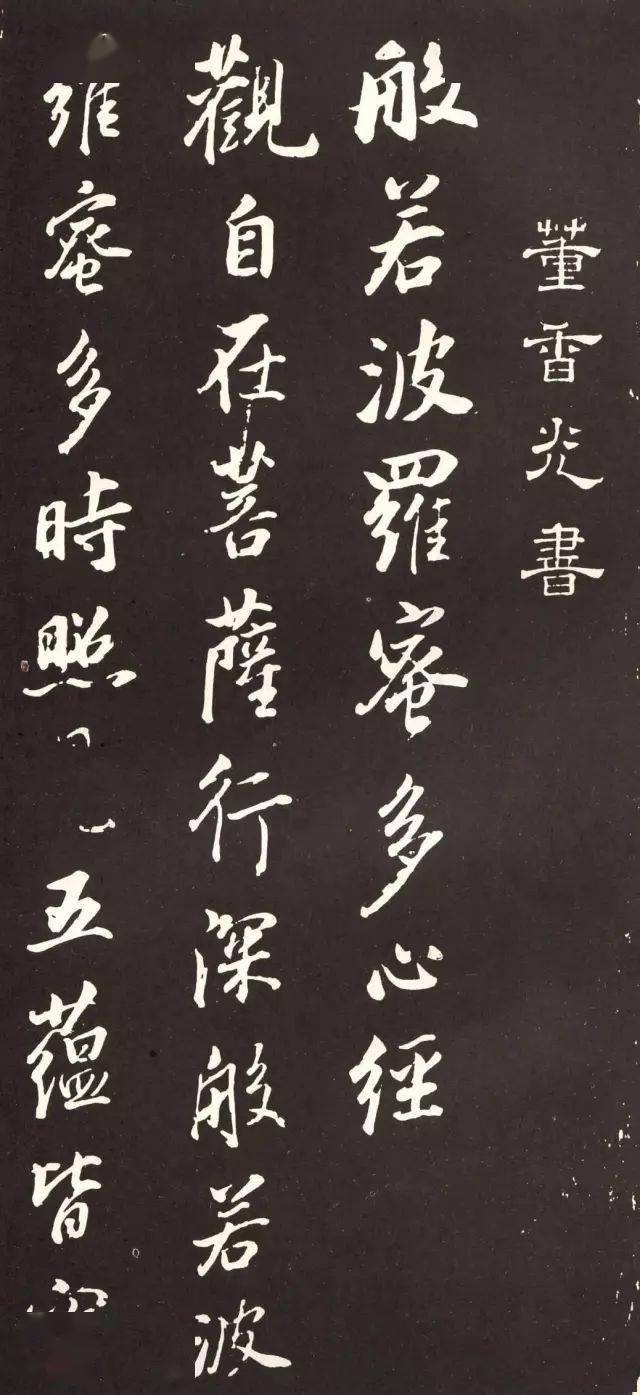 董香光書
般若波羅蜜多心經
觀自在菩薩行深般若波
羅蜜多時照五蘊皆